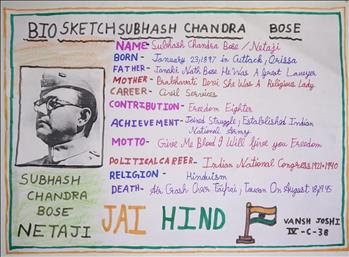 BIO SKETCH SUBHASH CHANDRA BOSE
NAME- Subhash Chandra Bose / Netaji
BORN - January 23, 1897 in Cuttack, Orissa
FATHER- Janaki Nath Bose He Was A Great Lawyer
MOTHER- Prabhavati Devi She Was A Religious Lady
CAREER- Civil Services
CONTRIBUTION- Freedom Fighter
ACHIEVEMENT- Joined Struggle, Established Indian
National Army
MOTTO- Give Me Blood I Will Give you Freedom
POLITICAL CAREER- Indian National Congress 1921-1940
RELIGION - Hinduism
DEATH- Air Crash Over Taipei, Taiwan On August 18, 1945
SUBHASH
CHANDRA
BOSE
NETAJI
JAI HIND
VANSH JOSHI
IV-C-38